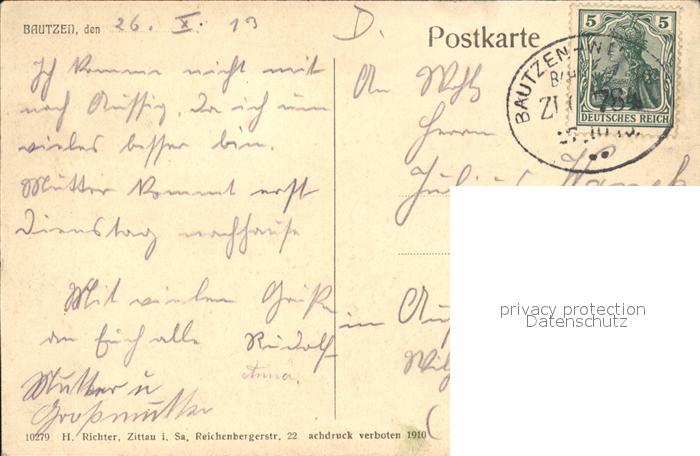 BAUTZEN, den 26. X. 13
D.
Postkarte
5 5
DEUTSCHES REICH
BAUTZEN-W
784
Ich komme nicht mit
nach Aussig, da ich um
vieles besser bin.
Mutter kommt erst
Dienstag nachhause
Mit vielen Grüße
an Euch alle Rudolf
Anna
Mutter u
Großmutter
An
Herrn
Julius
in
privacy protection
Datenschutz
10279 H. Richter, Zittau i. Sa, Reichenbergerstr. 22 achdruck verboten 1910